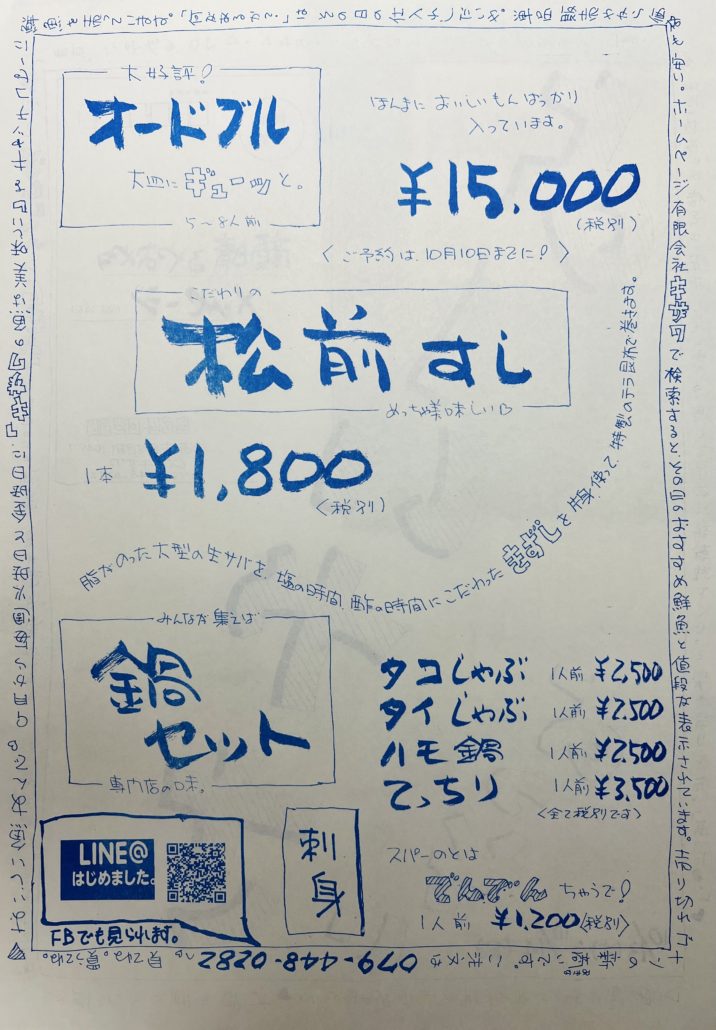 大好評!
オードブル
大皿に ギューッと。
5~8人前
ほんまに おいしいもんばっかり
入っています。
¥15,000
(税別)
〈ご予約は、10月10日までに!〉
こだわりの
松前すし
めっちゃ美味しい♡
1本 ¥1,800
〈税別〉
脂がのった大型の生サバを、塩の時間、酢の時間にこだわった きずし を 使って、特製のテラ昆布で巻きます。
みんなが集えば
鍋
セット
専門店の味。
タコしゃぶ 1人前 ¥2,500
タイしゃぶ 1人前 ¥2,500
ハモ鍋 1人前 ¥2,500
てっちり 1人前 ¥3,500
〈全て税別です〉
LINE@
はじめました。
FBでも見られます。
刺身
スーパーのとは
でんでん ちゃうで!
1人前 ¥1,200(税別)
も安い。ホームページ有限会社 で検索すると、その日のおすすめ鮮魚と値段が表示されています。売り切れゴ
079-448-0282
見てね。買うてね。
♥はいしい魚あんで。9月から毎週火曜日と金曜日に